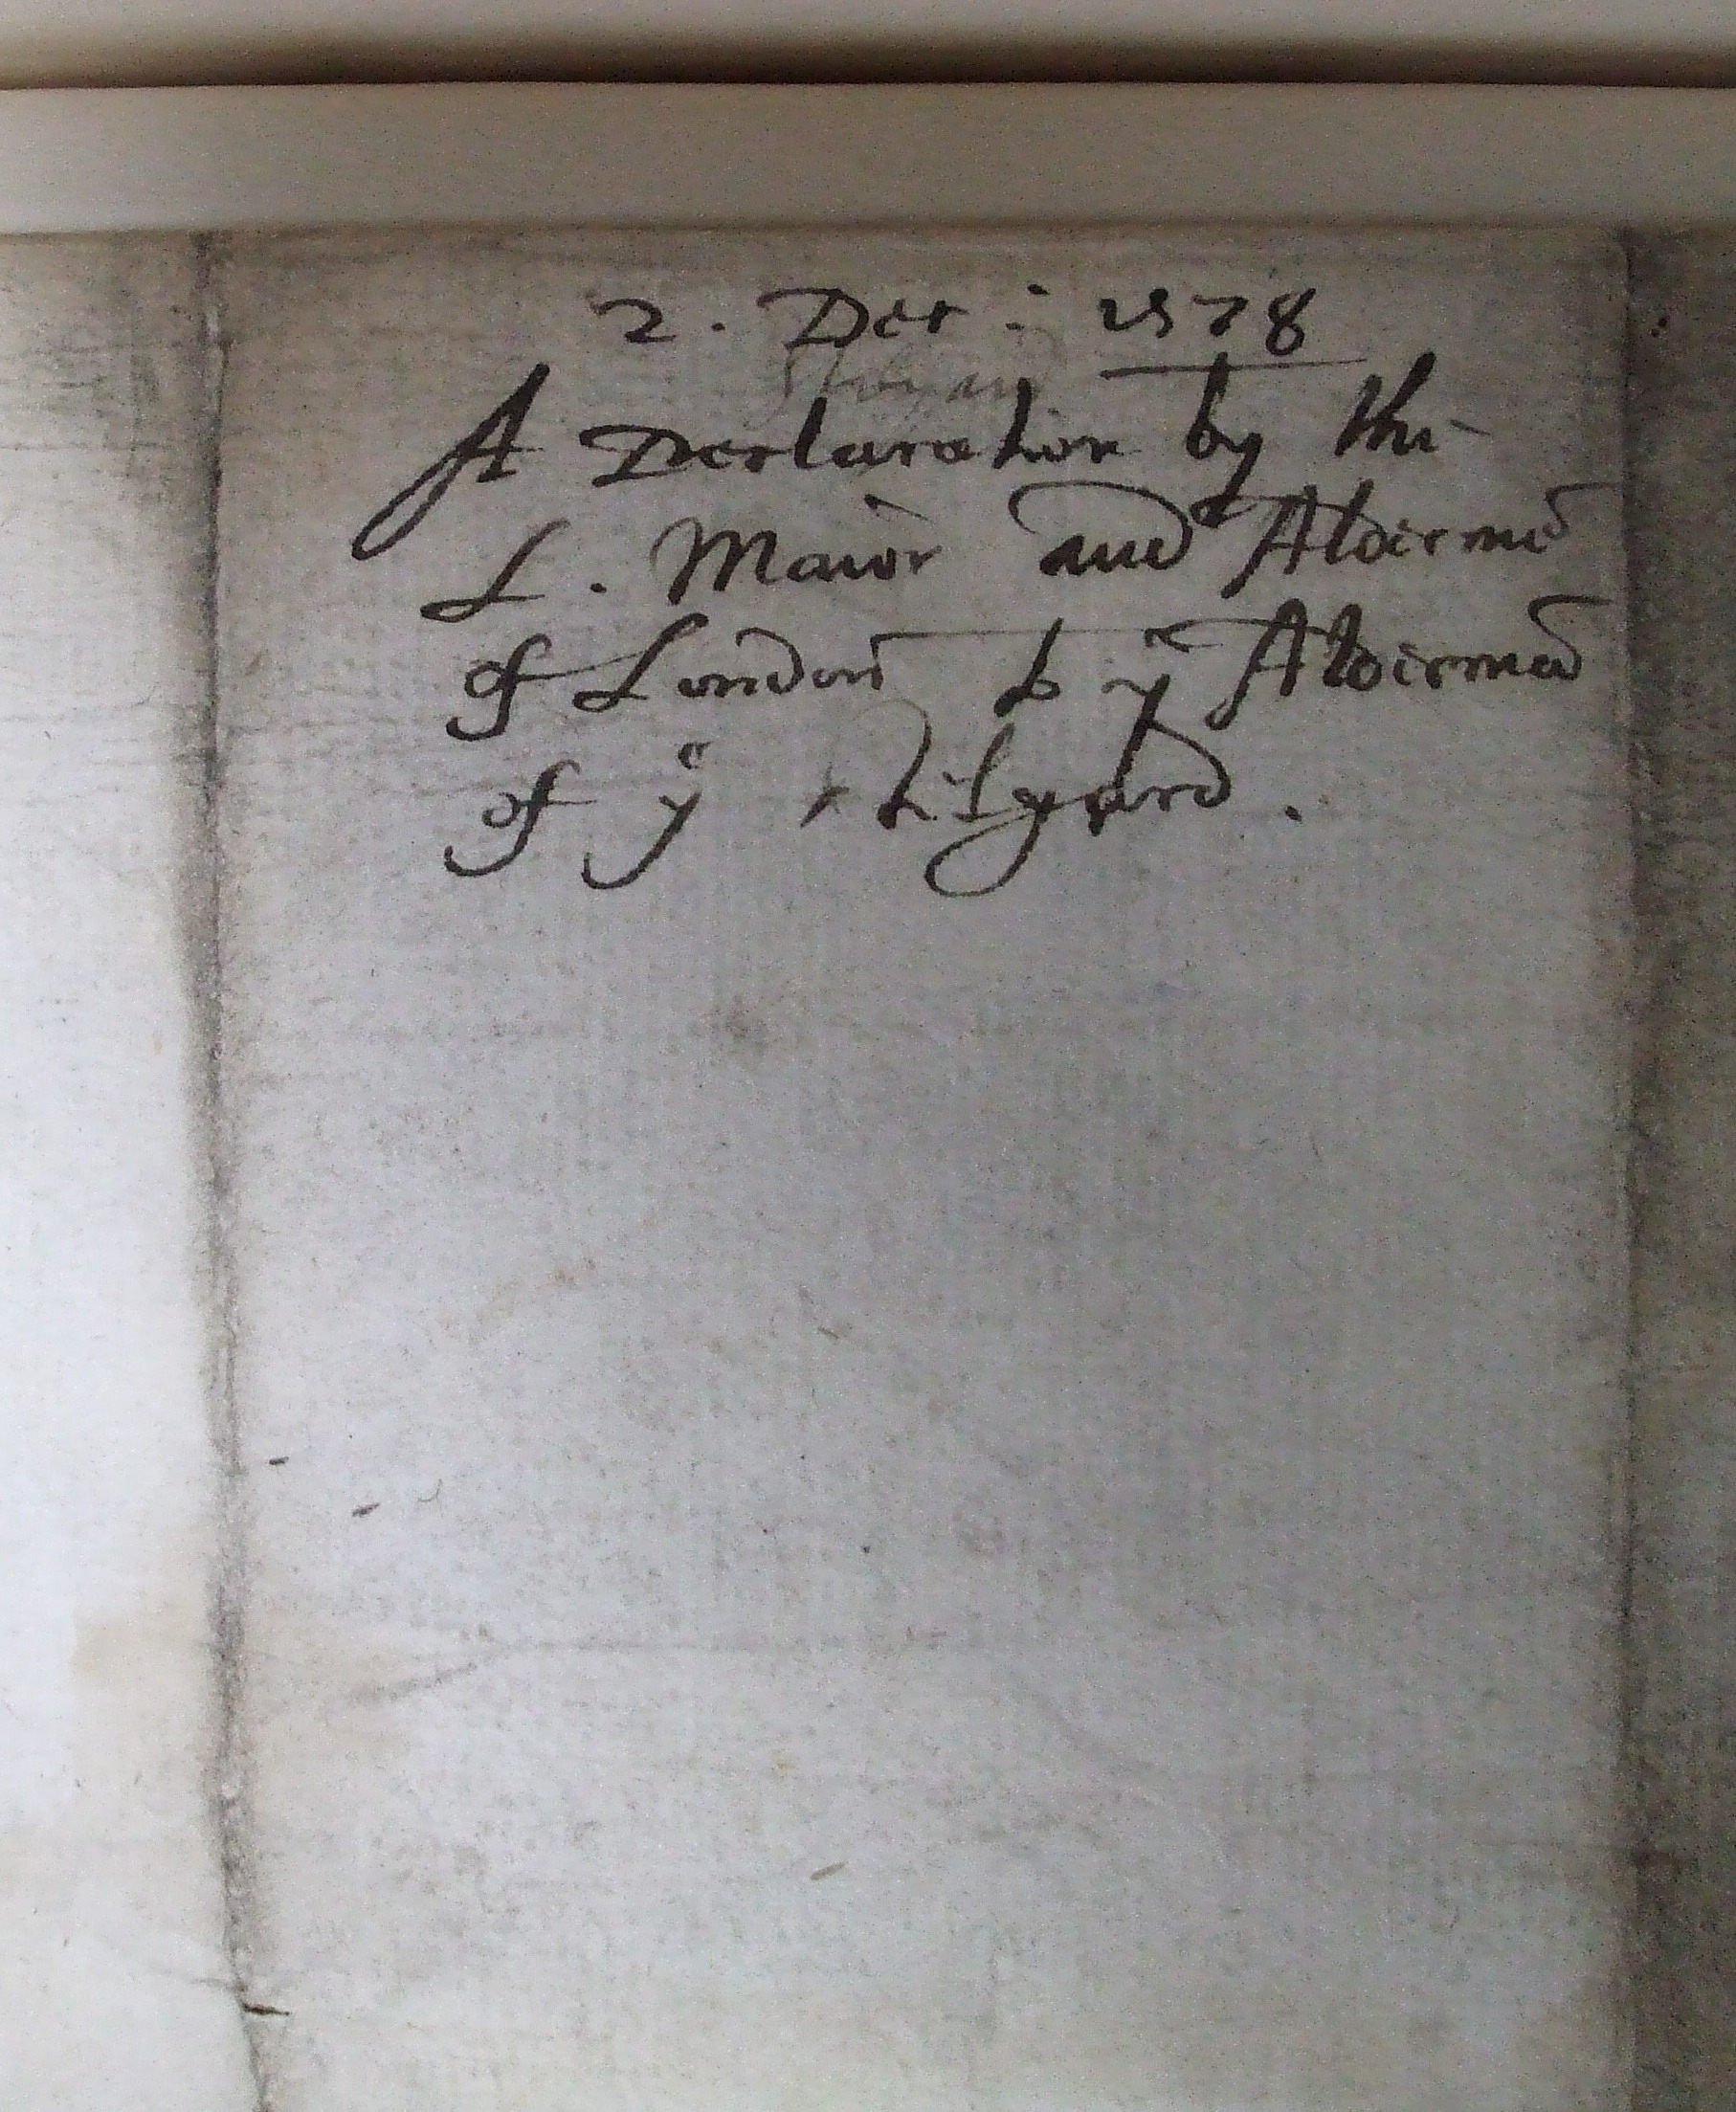 2. Dec: 1578
Stilyard
A Declaration by the
L. Maior and Aldermē
of London to yᵉ Aldermē
of yᵉ Stilyard.